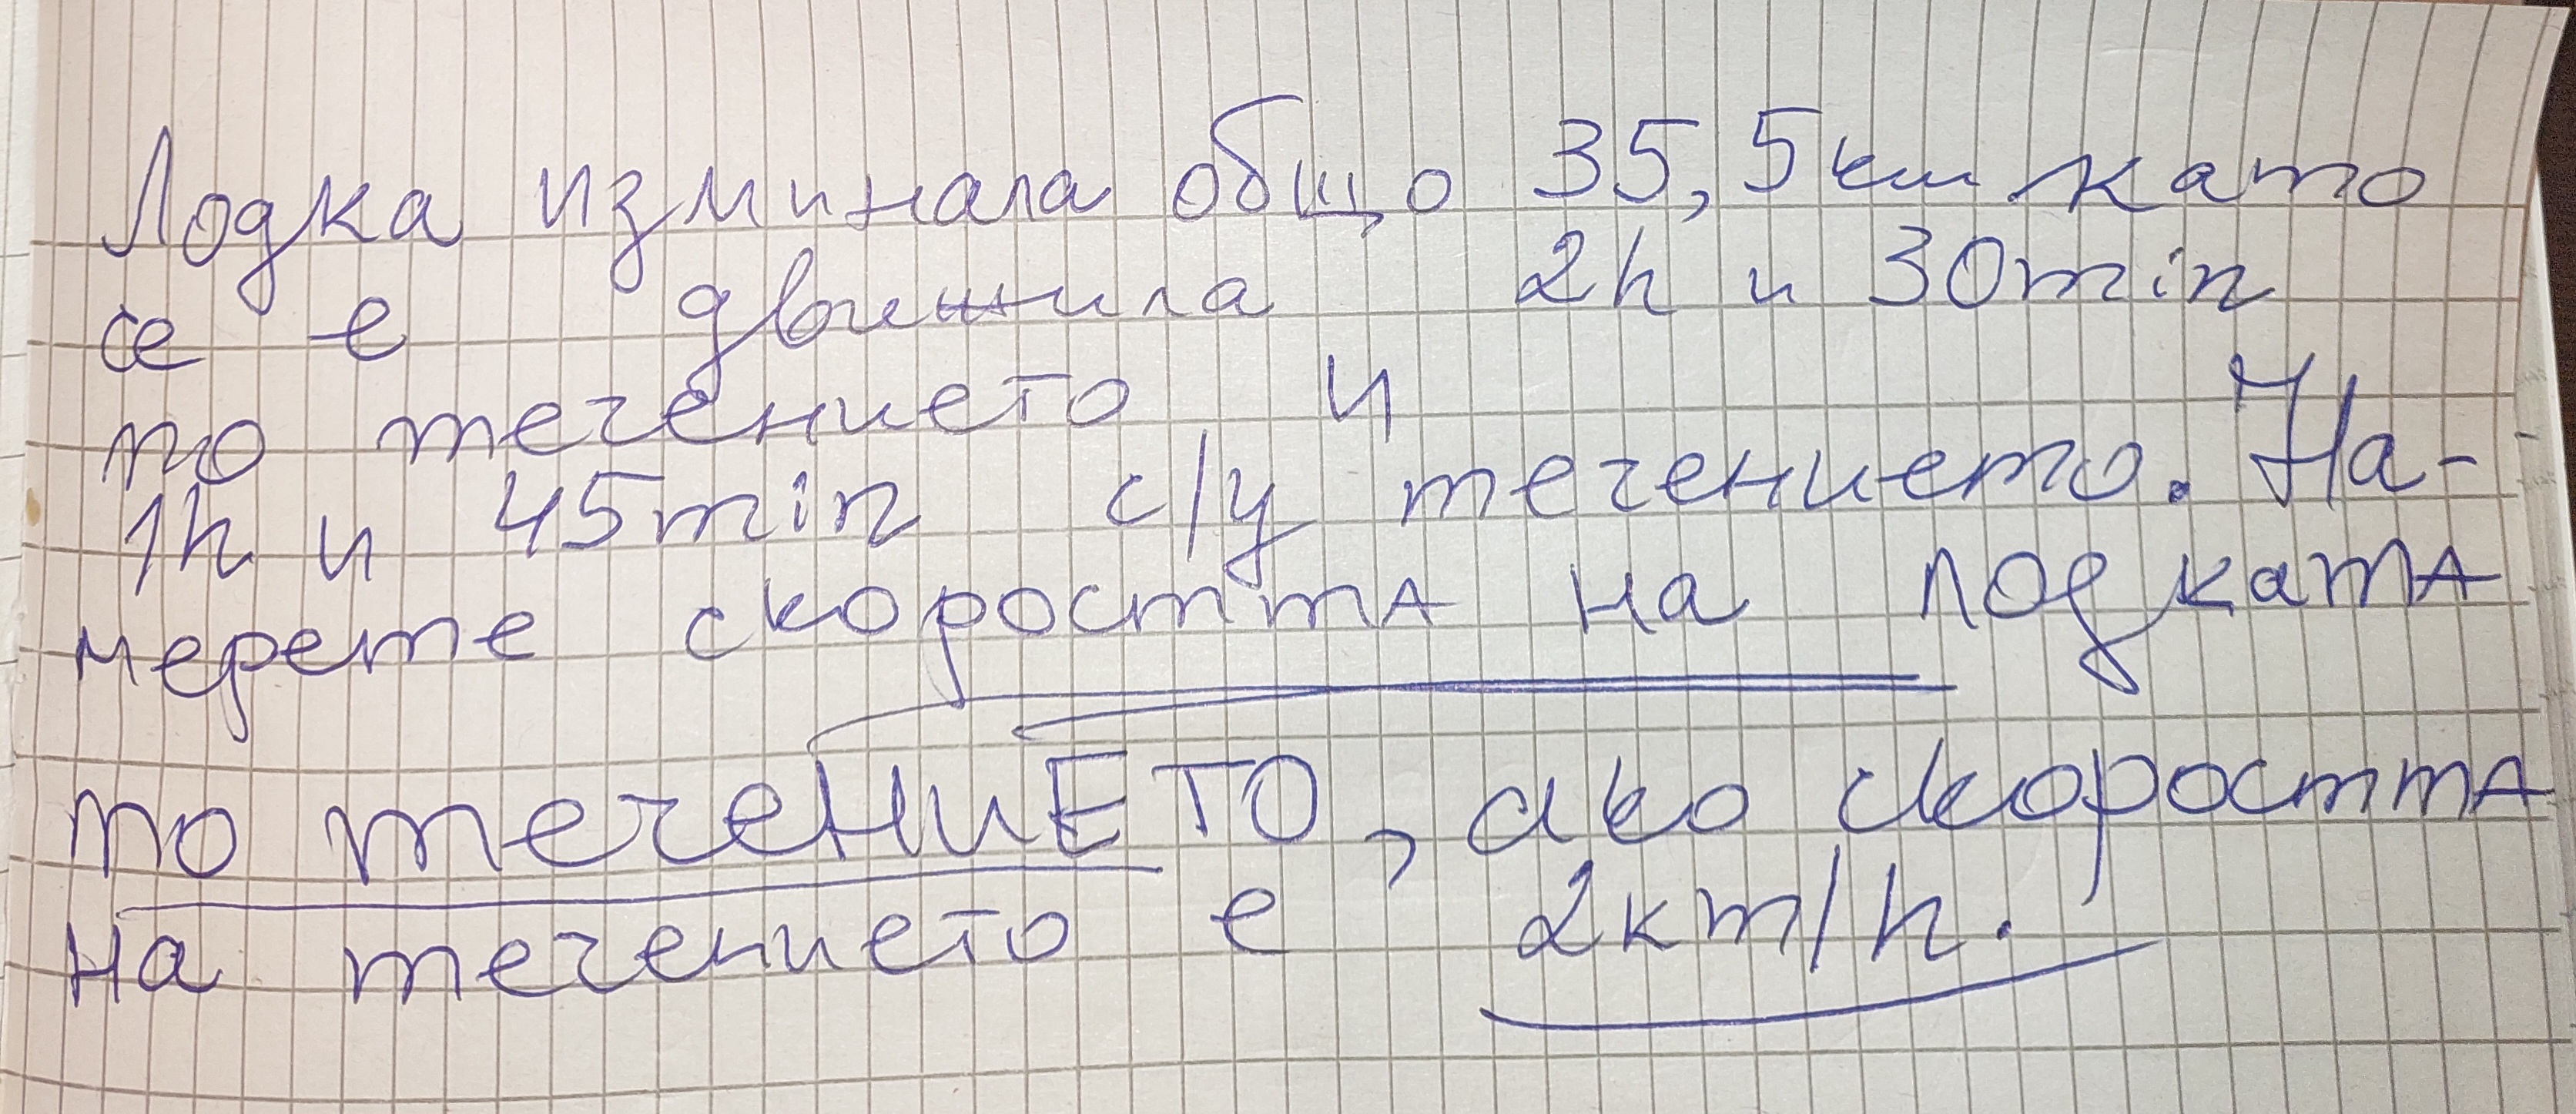 Лодка изминала общо 35,5км като
се е движила 2h и 30min
по течението и
1h и 45min с/у течението. На-
мерете скоростта на лодката
по течениЕТО, ако скоростта
на течението е 2km/h.